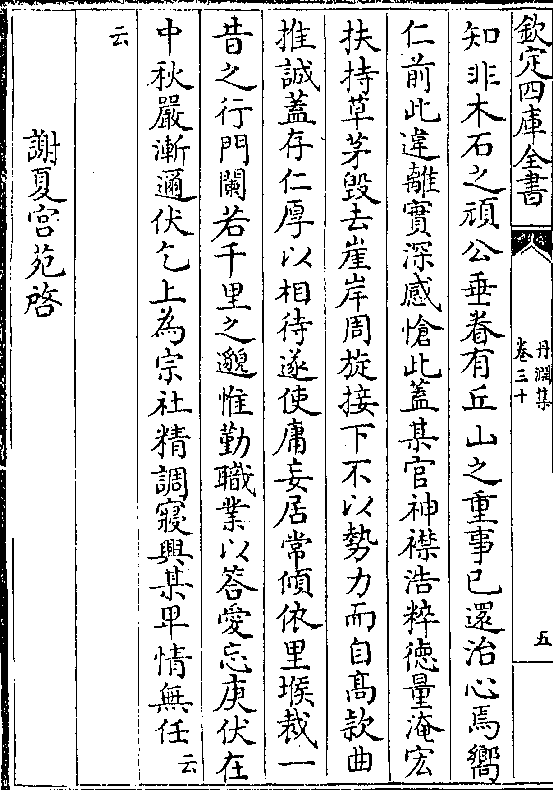 欽定四庫全書
丹淵集
卷三十
五
知非木石之頑公垂眷有丘山之重事已還治心焉嚮
仁前此違離實深感愴此蓋某官神襟浩粹德量淹宏
扶持草茅毀去崖岸周旋接下不以勢力而自高款曲
推誠蓋存仁厚以相待遂使庸妄居常傾依里堠裁一
昔之行門闌若千里之邈惟勤職業以答愛忘庚伏在
中秋嚴漸邇伏乞上為宗社精調寢興某卑情無任云
云
謝夏宫苑啓